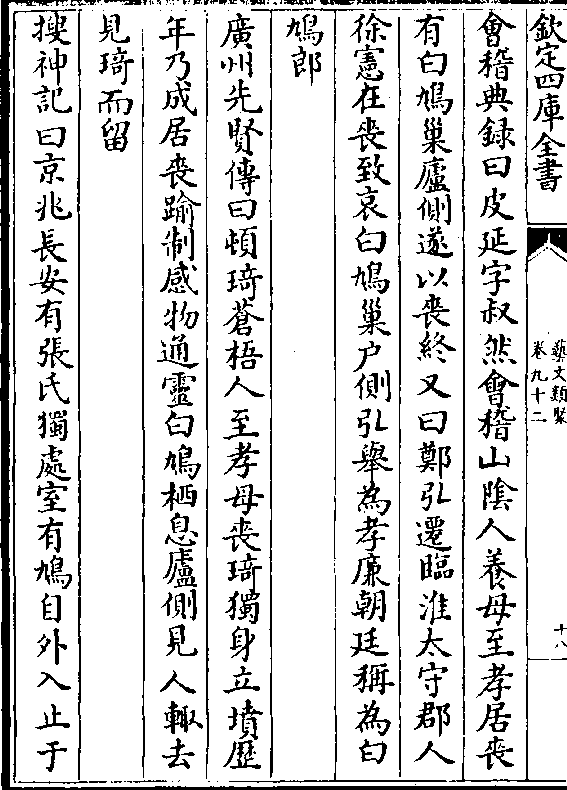 欽定四庫全書
藝文類聚
卷九十二
十八
會稽典録曰皮延字叔然會稽山陰人養母至孝居喪
有白鳩巢廬側遂以喪終又曰鄭弘遷臨淮太守郡人
徐憲在喪致哀白鳩巢户側弘舉為孝廉朝廷稱為白
鳩郎
廣州先賢傳曰頓琦蒼梧人至孝母喪琦獨身立墳歷
年乃成居喪踰制感物通靈白鳩栖息廬側見人輙去
見琦而留
搜神記曰京兆長安有張氏獨處室有鳩自外入止于